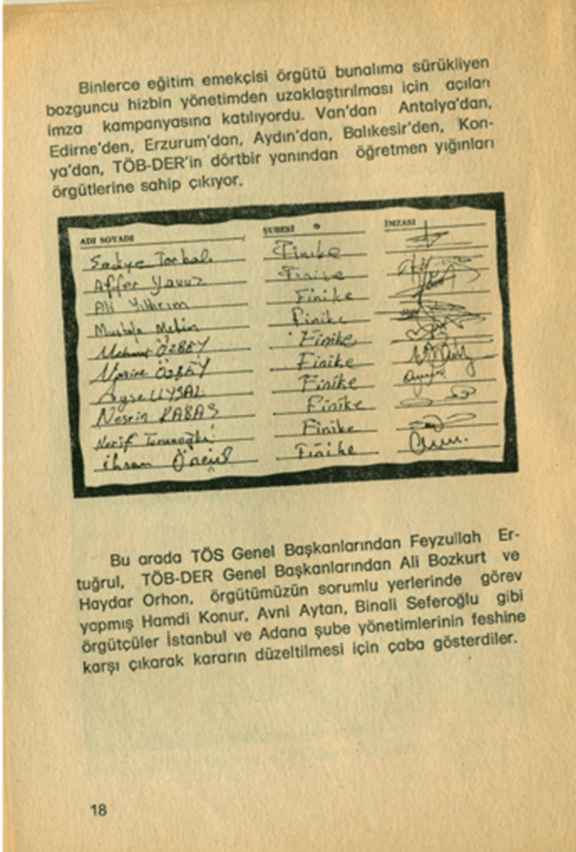 Binlerce eğitim emekçisi örgütü bunalıma sürükliyen
bozguncu hizbin yönetimden uzaklaştırılması için açılan
imza kampanyasına katılıyordu. Van'dan Antalya'dan,
Edirne'den, Erzurum'dan, Aydın'dan, Balıkesir'den, Kon-
ya'dan, TÖB-DER'in dörtbir yanından öğretmen yığınları
örgütlerine sahip çıkıyor.
ADI SOYADI ŞUBESİ İMZASI
Sadye Torbalı Finike
Affer Yavuz Finike
Ali Yıldırım Finike
Mustafa Metin Finike
Mehmet ÖZBEY Finike
ÖZBEY Finike
Ayşe UYSAL Finike
Nesrin KABAŞ Finike
Finike
İhsan Finike
Bu arada TÖS Genel Başkanlarından Feyzullah Er-
tuğrul, TÖB-DER Genel Başkanlarından Ali Bozkurt ve
Haydar Orhon, örgütümüzün sorumlu yerlerinde görev
yapmış Hamdi Konur, Avni Aytan, Binali Seferoğlu gibi
örgütçüler İstanbul ve Adana şube yönetimlerinin feshine
karşı çıkarak kararın düzeltilmesi için çaba gösterdiler.
18